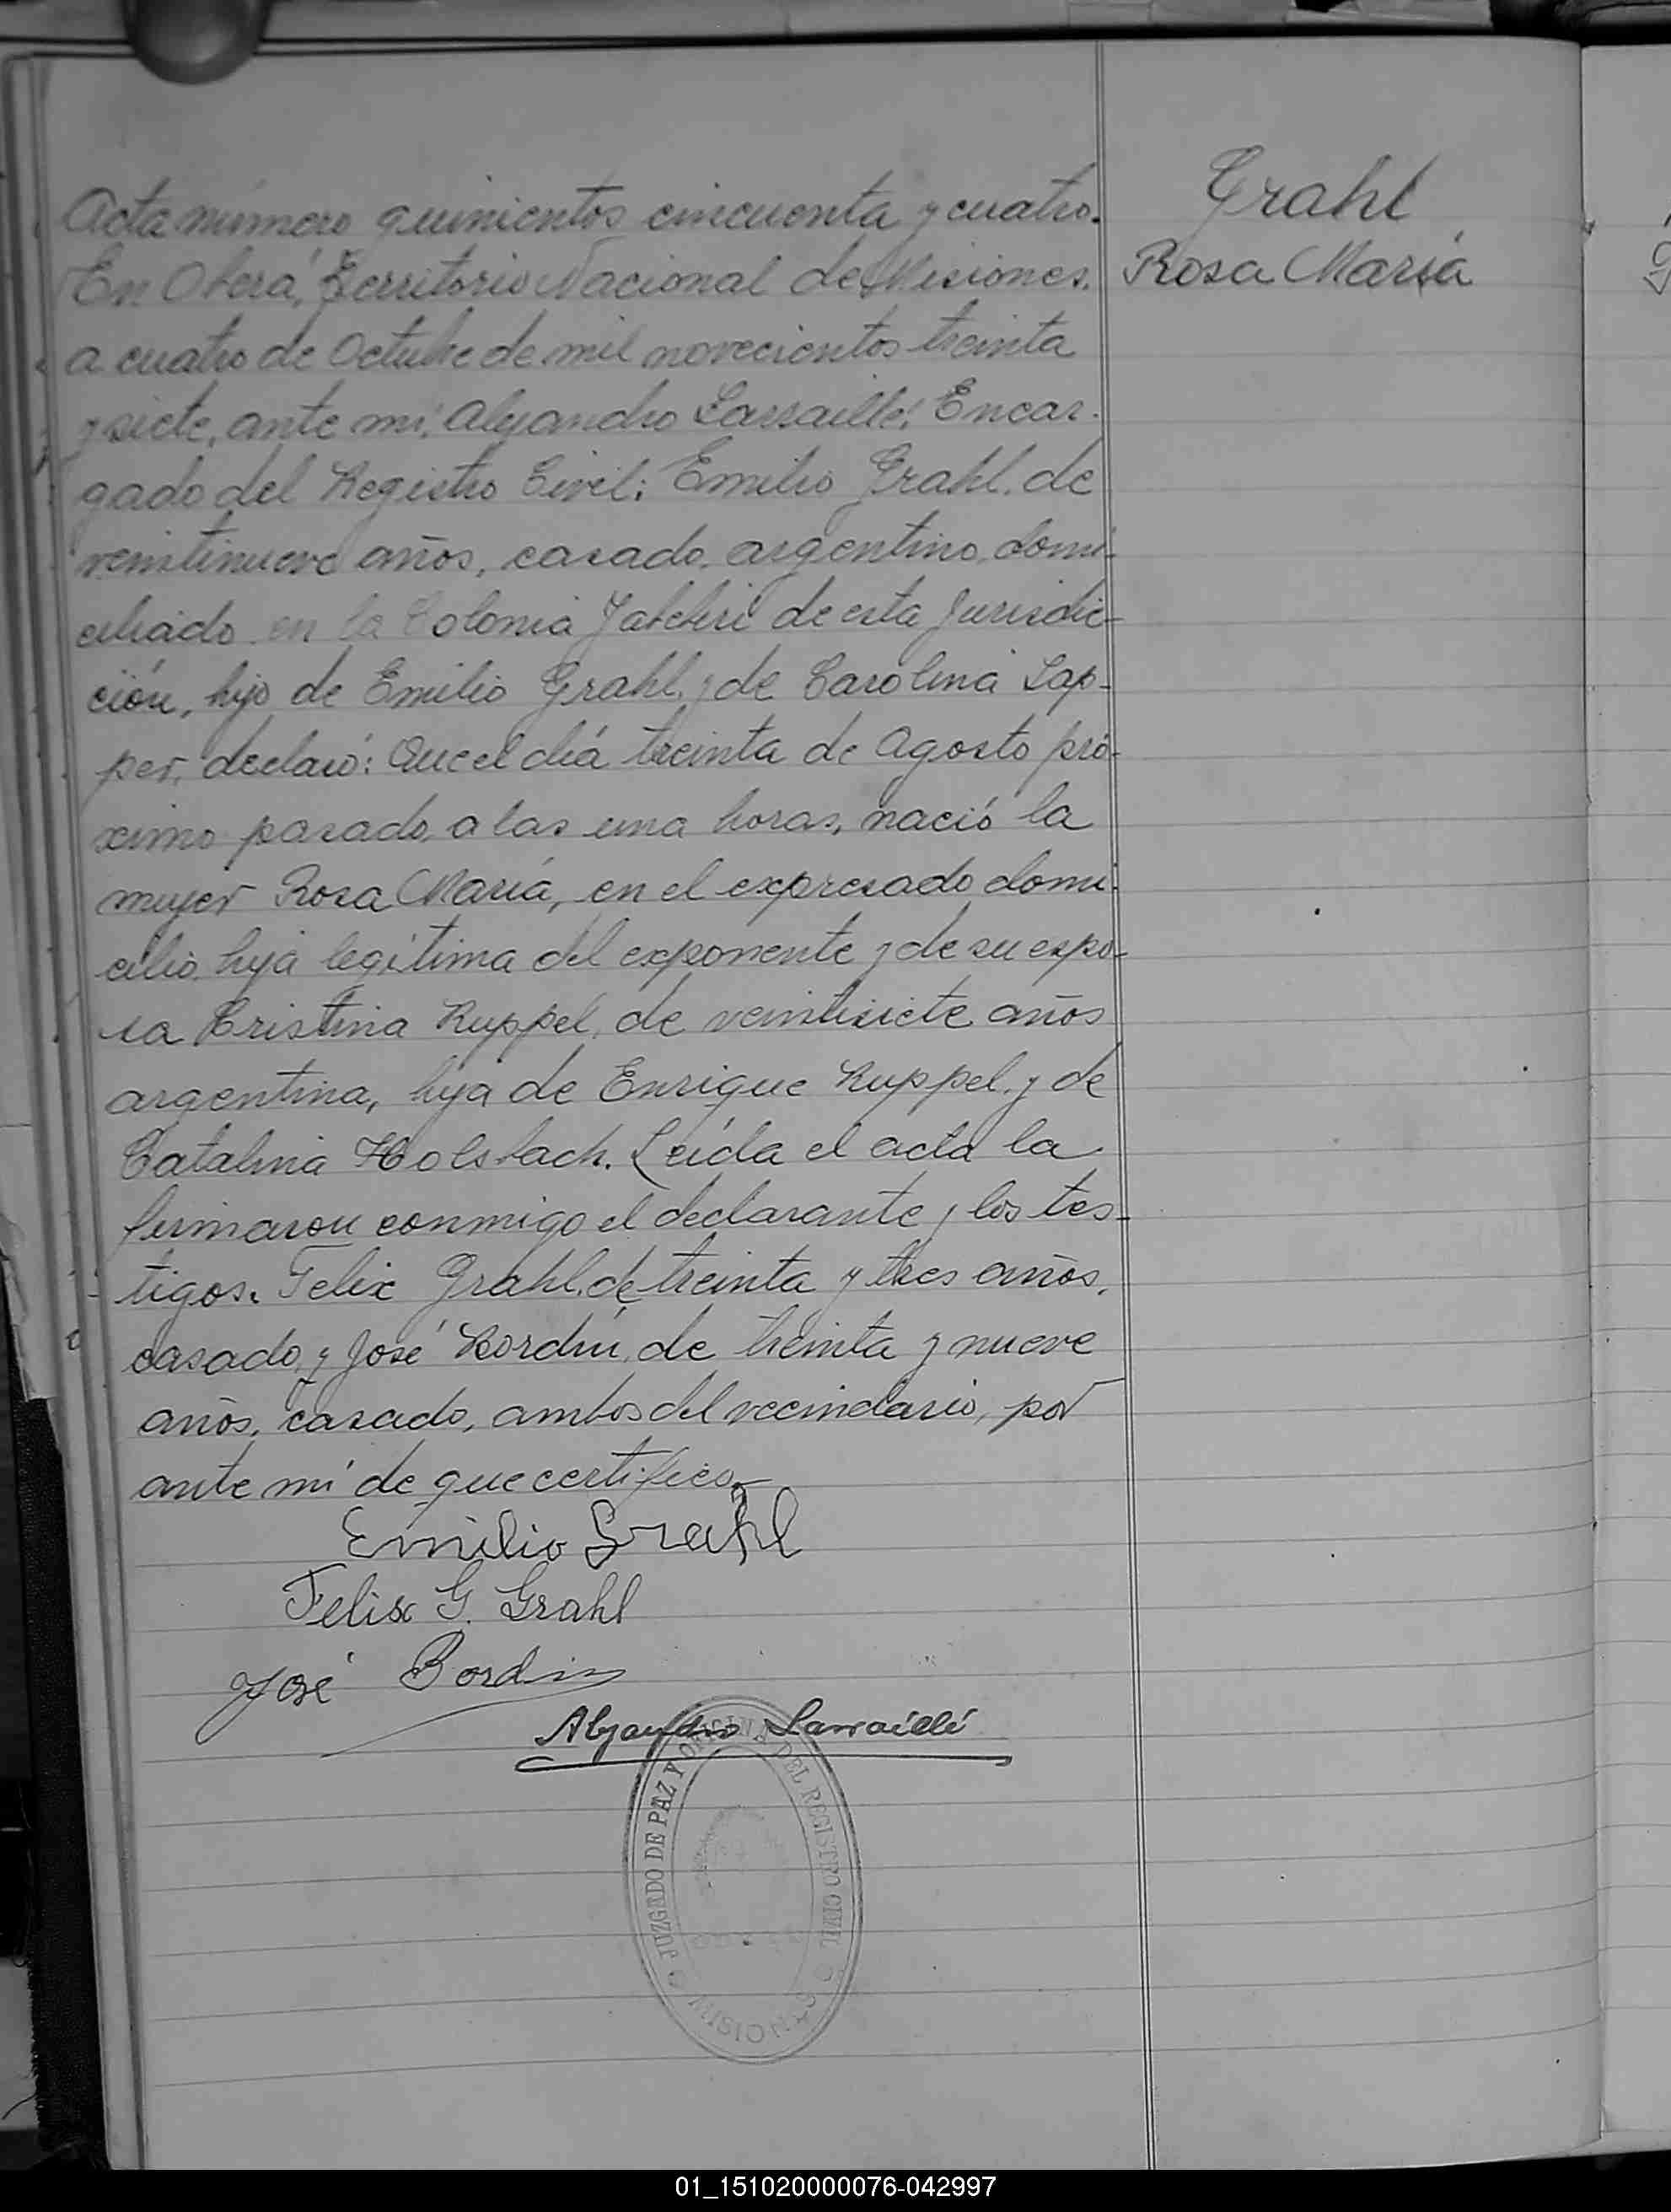 Acta número quinientos cincuenta y cuatro.
En Oberá, Territorio Nacional de Misiones,
a cuatro de Octubre de mil novecientos treinta
y siete, ante mí, Alejandro Larraillé, Encar-
gado del Registro Civil: Emilio Grahl, de
veintinueve años, casado, argentino, domi-
ciliado en la Colonia Yabebiri de esta Jurisdic-
ción, hijo de Emilio Grahl, y de Carolina Sap-
per, declaró: Que el día treinta de Agosto pró-
ximo pasado, a las una horas, nació la
mujer Rosa María, en el expresado domi-
cilio, hija legítima del exponente y de su espo-
sa Cristina Ruppel, de veintisiete años
argentina, hija de Enrique Ruppel, y de
Catalina Holsbach. Leída el acta la
firmaron conmigo el declarante y los tes-
tigos. Felix Grahl, de treinta y tres años,
casado, y José Bordin, de treinta y nueve
años, casado, ambos del vecindario, por
ante mí de que certifico.
Emilio Grahl
Felix G. Grahl
José Bordin
Alejandro Larraillé
JUZGADO DE PAZ Y OFICINA DEL REGISTRO CIVIL
MISIONES
Grahl
Rosa María
01_151020000076-042997